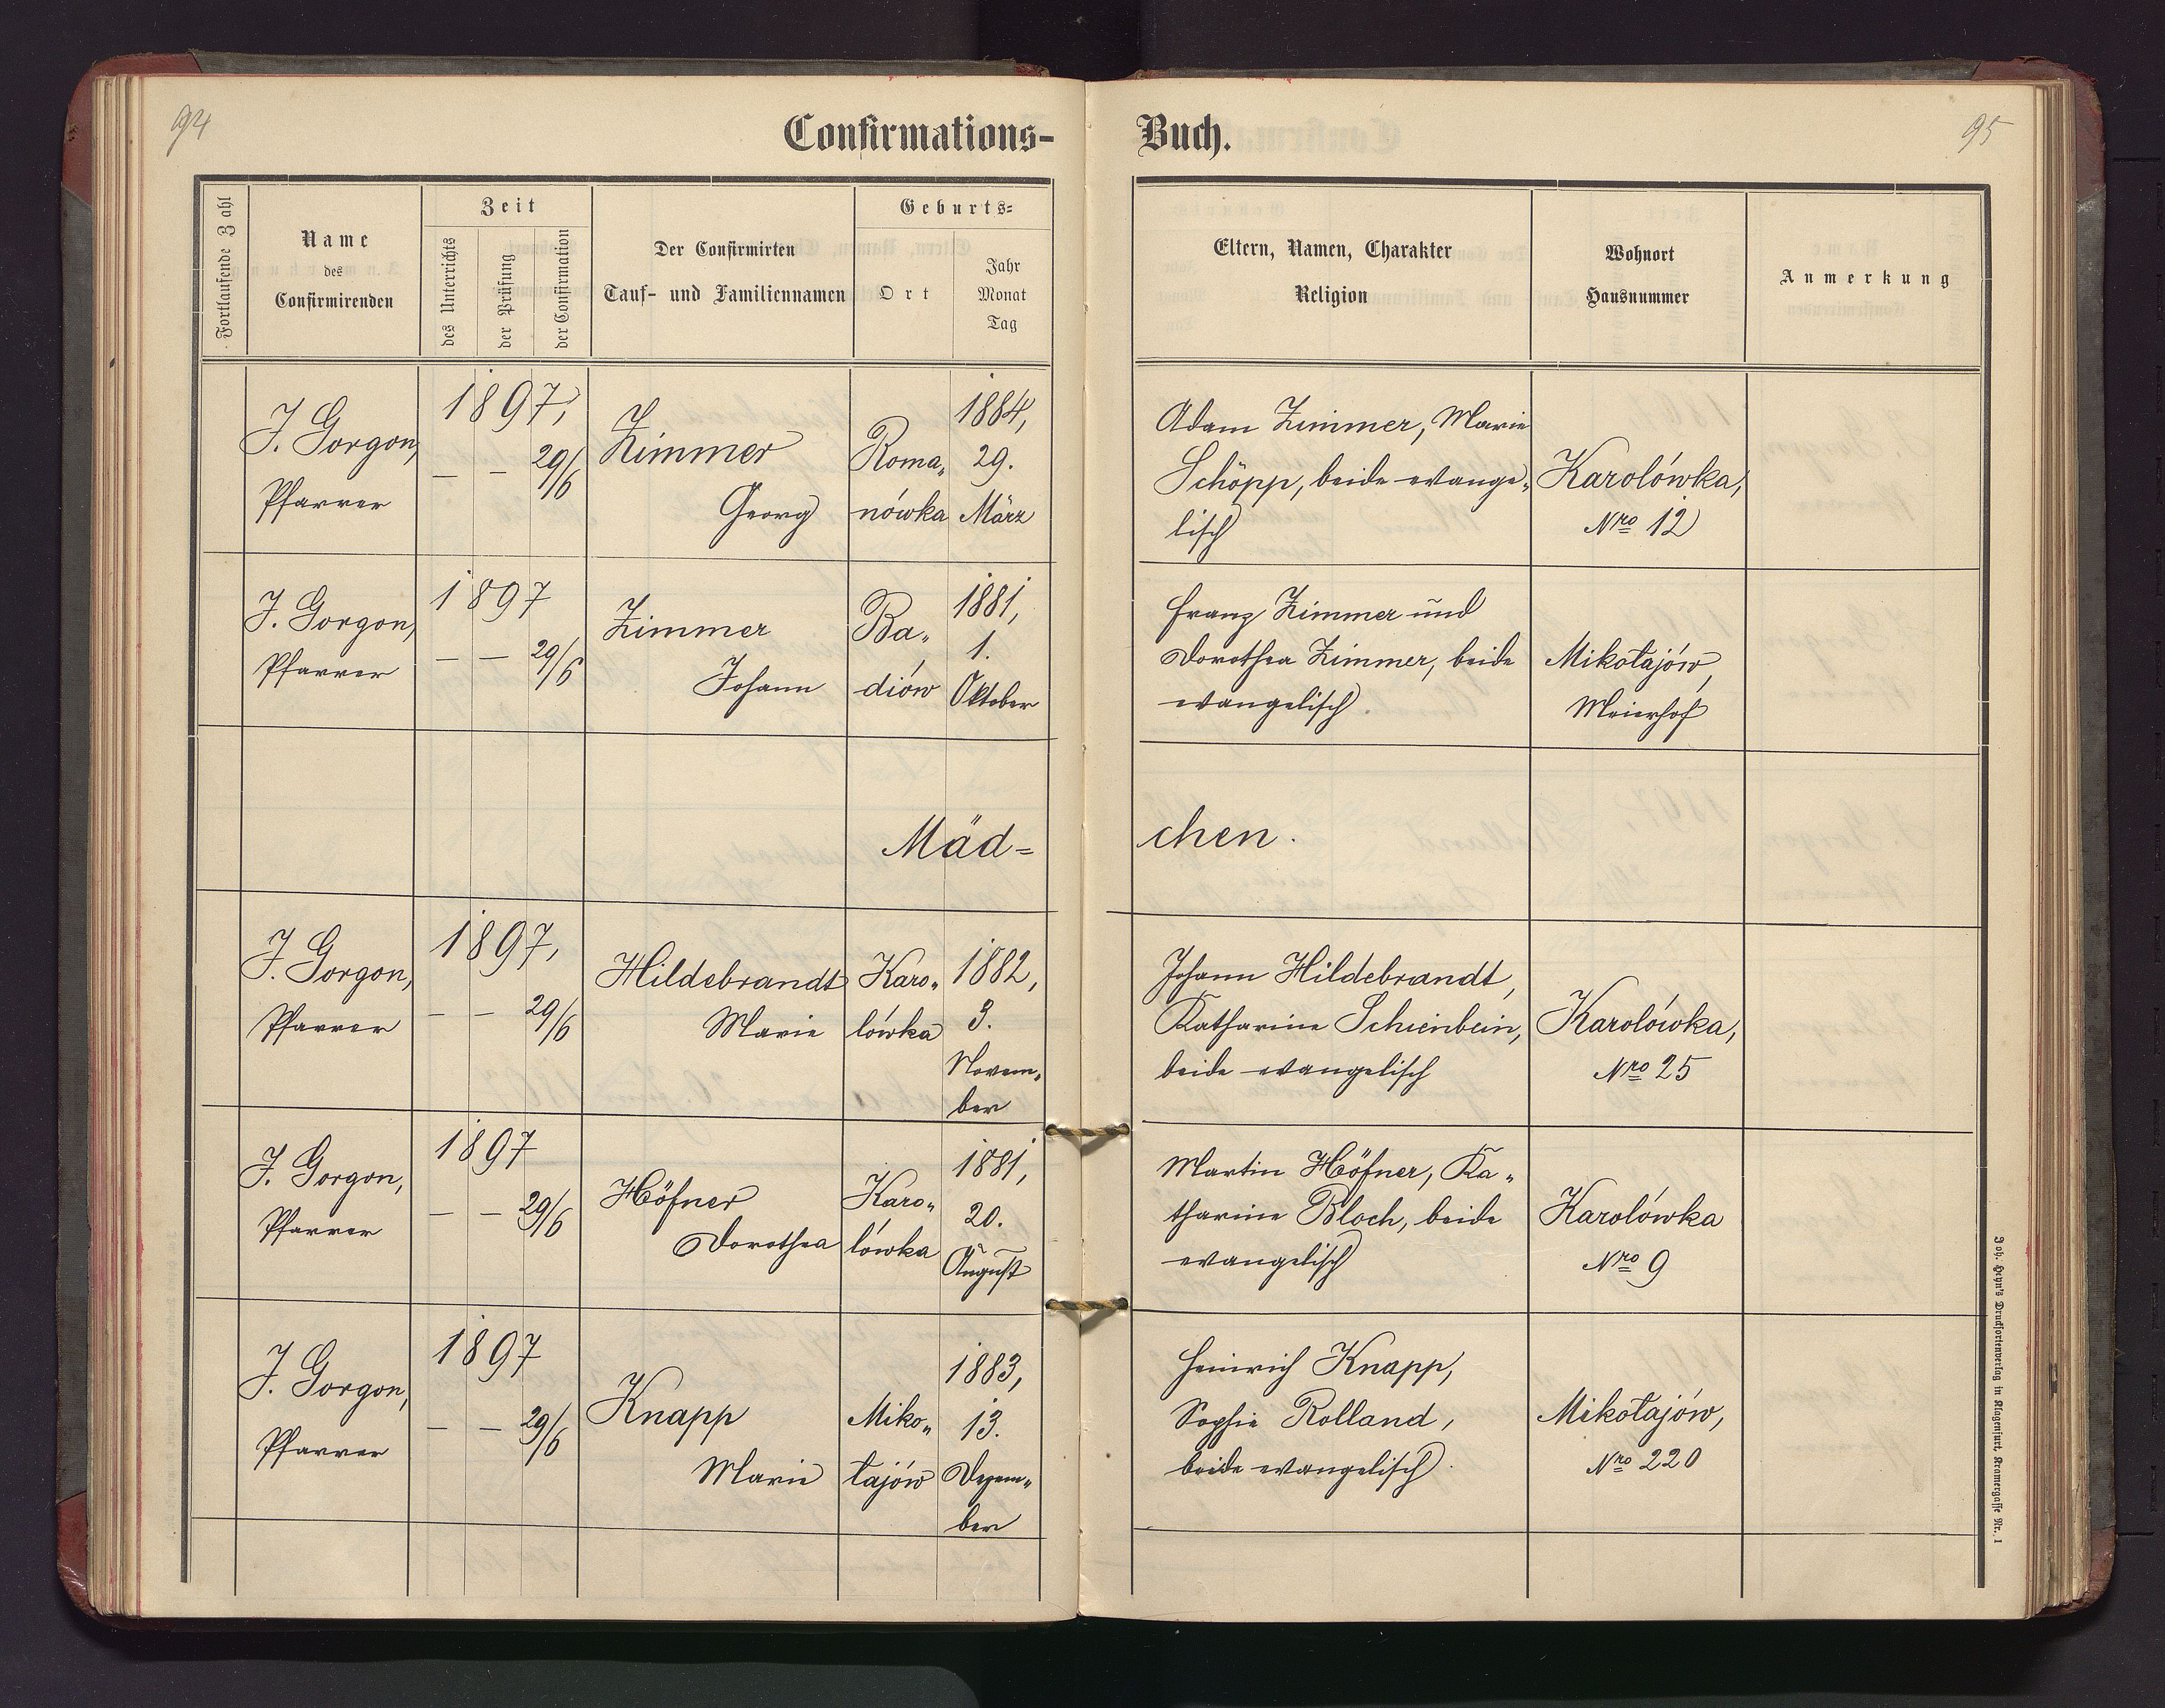 94
Confirmations-
Buch.
95
Fortlaufende Zahl
Name
des
Confirmirenden
Zeit
des Unterrichts
der Prüfung
der Confirmation
Der Confirmirten
Tauf- und Familiennamen
Geburts-
Ort
Jahr
Monat
Tag
Eltern, Namen, Charakter
Religion
Wohnort
Hausnummer
Anmerkung
J. Gorgon,
Pfarrer
1897,
— — 29/6
Zimmer
Georg
Roma„
nówka
1884,
29.
März
Adam Zimmer, Marie
Schöpp, beide evange„
lisch
Karolówka,
Nro 12
J. Gorgon,
Pfarrer
1897
— — 29/6
Zimmer
Johann
Ba„
diów
1881,
1.
Oktober
Franz Zimmer und
Dorothea Zimmer, beide
evangelisch.
Mikołajów,
Meierhof
Mäd=
chen.
J. Gorgon,
Pfarrer
1897,
— — 29/6
Hildebrandt
Marie
Karo„
lówka
1882,
3.
Novem„
ber
Johann Hildebrandt,
Katharine Schienbein,
beide evangelisch
Karolówka,
Nro 25
J. Gorgon,
Pfarrer
1897
— — 29/6
Höfner
Dorothea
Karo„
lówka
1881,
20.
August
Martin Höfner, Ka„
tharine Bloch, beide
evangelisch
Karolówka
Nro 9
J. Gorgon,
Pfarrer
1897
— — 29/6
Knapp
Marie
Miko„
łajów
1883,
13.
Dezem„
ber
Heinrich Knapp,
Sophie Rolland,
beide evangelisch.
Mikołajów,
Nro 220
Joh. Heyn's Drucksortenverlag in Klagenfurt, Kramergasse Nr. 1